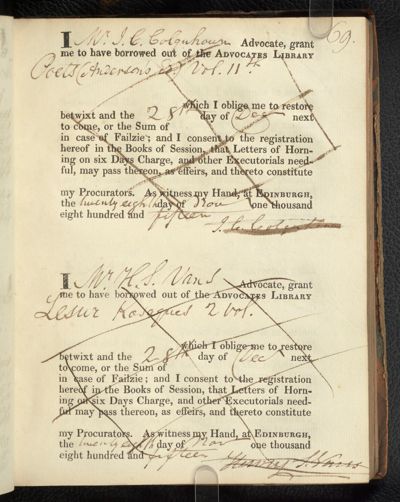 69.
I Mr. J. C. Colquhoun Advocate, grant
me to have borrowed out of the ADVOCATES LIBRARY
Poets (Andersons Ed) Vol. 11th
which I oblige me to restore
betwixt and the 28th day of Dec next
to come, or the Sum of
in case of Failzie; and I consent to the registration
hereof in the Books of Session, that Letters of Horn-
ing on six Days Charge, and other Executorials need-
ful, may pass thereon, as effeirs, and thereto constitute
my Procurators. As witness my Hand, at EDINBURGH,
the twenty eighth day of Nov one thousand
eight hundred and fifteen
J. C. Colquhoun
I Mr. H. S. Vans Advocate, grant
me to have borrowed out of the ADVOCATES LIBRARY
Lesur Kosaques 2 vol.
which I oblige me to restore
betwixt and the 28th day of Dec next
to come, or the Sum of
in case of Failzie; and I consent to the registration
hereof in the Books of Session, that Letters of Horn-
ing on six Days Charge, and other Executorials need-
ful may pass thereon, as effeirs, and thereto constitute
my Procurators. As witness my Hand, at EDINBURGH,
the twenty eighth day of Nov one thousand
eight hundred and fifteen
Henry S. Vans